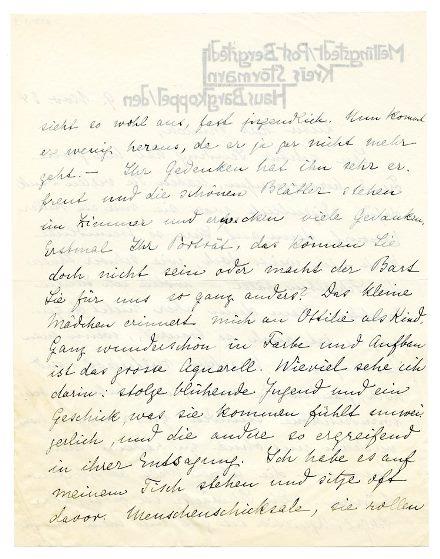 Mellingstedt-Post Bergstedt
Kreis Stormarn
Haus Bargkoppel/den
sieht so wohl aus, fast jugendlich. Nun kommt
er wenig heraus, da er ja gar nicht mehr
geht. — Ihr Gedenken hat ihn sehr er-
freut und die schönen Blätter stehen
im Zimmer und erwecken viele Gedanken.
Erstmal Ihr Porträt, das können Sie
doch nicht sein oder macht der Bart
Sie für uns so ganz anders? Das kleine
Mädchen erinnert mich an Ottilie als Kind.
Ganz wunderschön in Farbe und Aufbau
ist das grosse Aquarell. Wieviel sehe ich
darin: stolze blühende Jugend und ein
Geschick, was sie kommen fühlt unwei-
gerlich, und die andere so ergreifend
in ihrer Entsagung. Ich habe es auf
meinem Tisch stehen und sitze oft
davor. Menschenschicksale, sie rollen